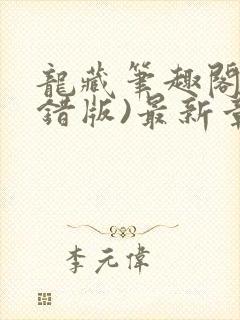 龍藏筆趣閣
錯版)最新章
李元偉